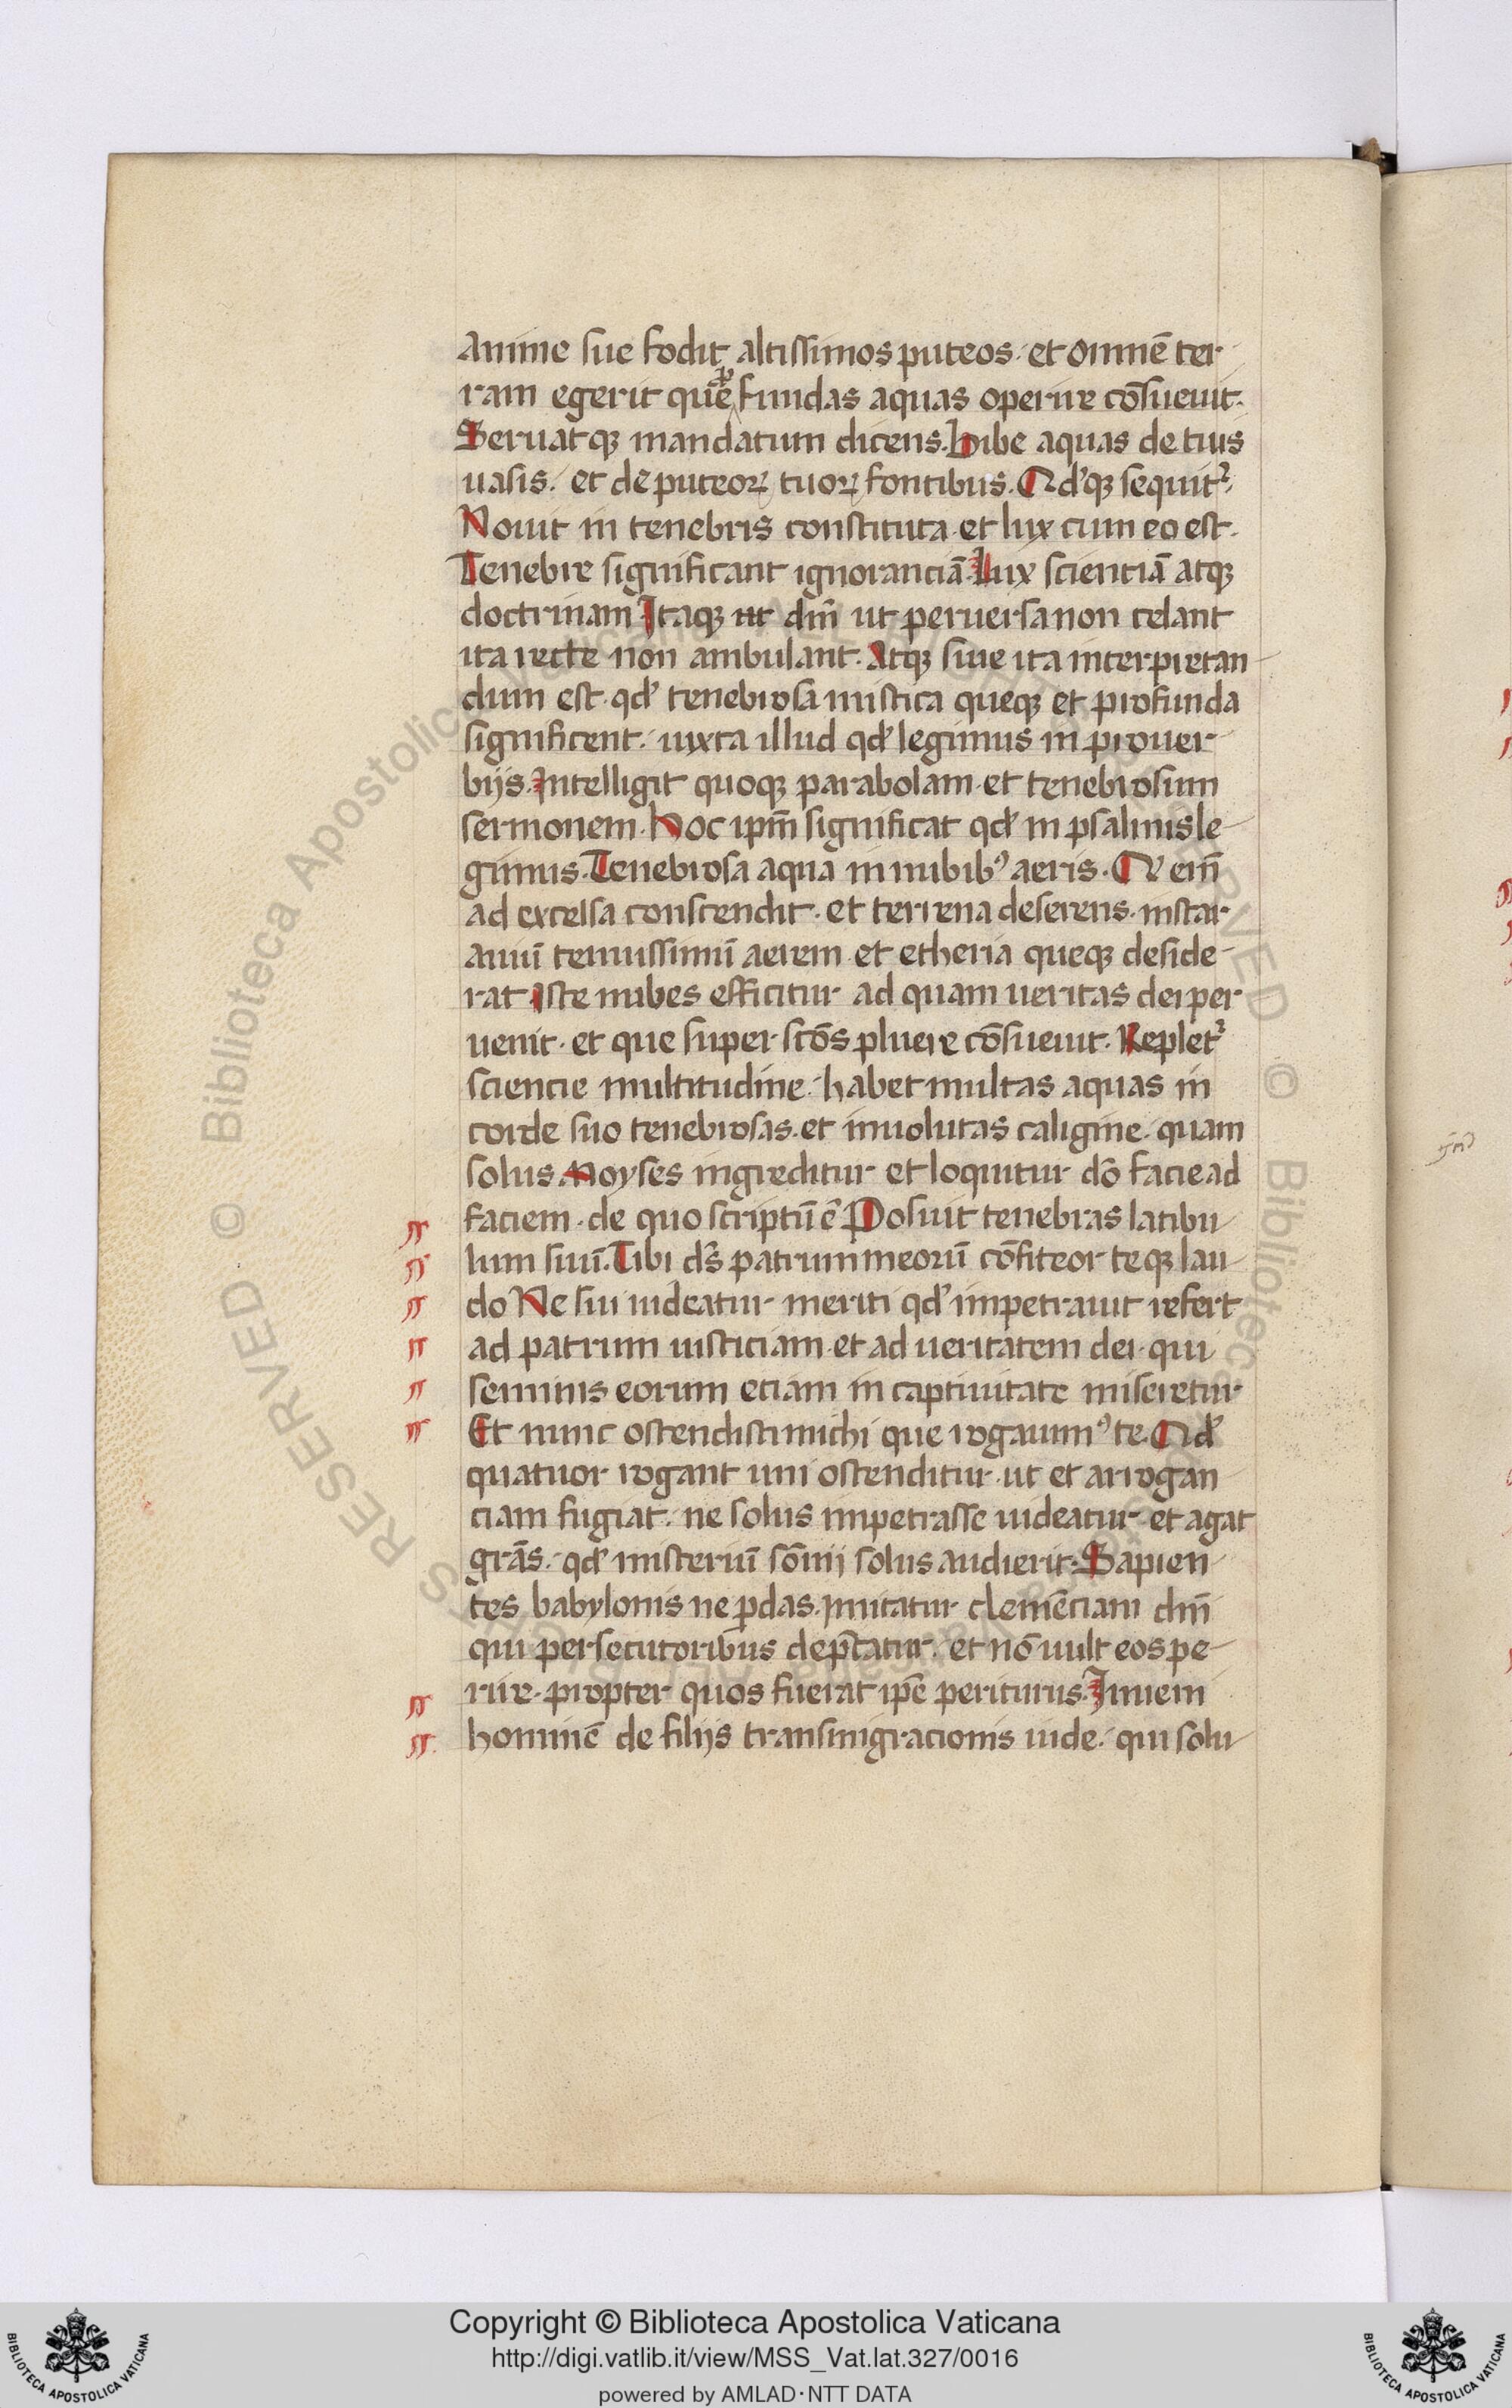 anime sue fodit altissimos puteos. et omnē ter
ram egerit que ꝓfundas aquas operire cōsueuit.
Seruatqꝫ mandatum dicens. bibe aquas de tuis
uasis. et de puteoꝝ tuoꝝ fontibus. Qd'qꝫ sequit᷑.
Nouit in tenebris constituta et lux cum eo est.
Tenebre significant ignoranciā. Lux scientiā atqꝫ
doctrinam Itaqꝫ ut dm̄ ut peruersa non celant
ita recte non ambulant. Atqꝫ siue ita interpretan
dum est. qd' tenebrosa mistica queqꝫ et profunda
significent. iuxta illud qd' legimus in prouer
bijs. Intelligit quoqꝫ parabolam et tenebrosum
sermonem. Hoc ipm̄ significat qd' in psalmis le
gimus. Tenebrosa aqua in nubibꝰ aeris. Qr em̄
ad excelsa conscendit. et terrena deserens. instar
auiū tenuissimū aerem et etheria queqꝫ deside
rat iste nubes efficitur ad quam ueritas dei per
uenit. et que super scōs pluere cōsueuit. Replet᷑
sciencie multitudine. habet multas aquas in
corde suo tenebrosas. et inuolutas caligine. quam
solus Moyses ingreditur et loquitur dō facie ad
faciem. de quo scriptū ē Posuit tenebras latibu
lum suū. Tibi ds̄ patrum meorū cōfiteor teqꝫ lau
do Ne sui uideatur meriti qd' impetrauit refert
ad patrum iusticiam et ad ueritatem dei. qui
seminis eorum etiam in captiuitate miseretur
Et nunc ostendisti michi que rogauimꝰ te. Qd'
quatuor rogant uni ostenditur. ut et arrogan
ciam fugiat. ne solus impetrasse uideatur et agat
grās. qd' misteriū sōmij solus audierit. Sapien
tes babylonis ne ꝑdas. imitatur clemēciam dm̄
qui persecutoribus dep̄catur. et nō uult eos pe
rire. propter quos fuerat ip̄e periturus. Inueni
hominē de filijs transmigracionis iude. qui solu
Copyright © Biblioteca Apostolica Vaticana
http://digi.vatlib.it/view/MSS_Vat.lat.327/0016
powered by AMLAD·NTT DATA